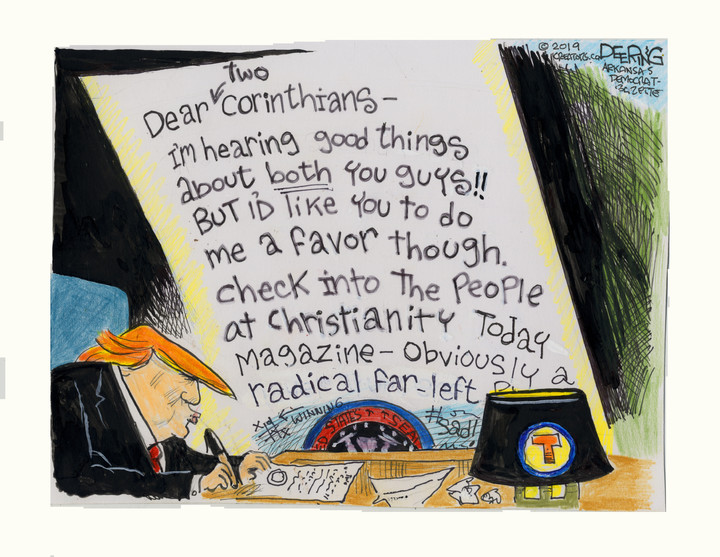 © 2019
CREATORS.CO
DEERING
ARKANSAS
DEMOCRAT-
GAZETTE
two
Dear corinthians-
i'm hearing good things
about both you guys!!
BUT i'D like you to do
me a favor though.
check into The people
at Christianity Today
Magazine- Obviously a
radical far-left
WINNING
#Sad!
ED STATES
SEA
T